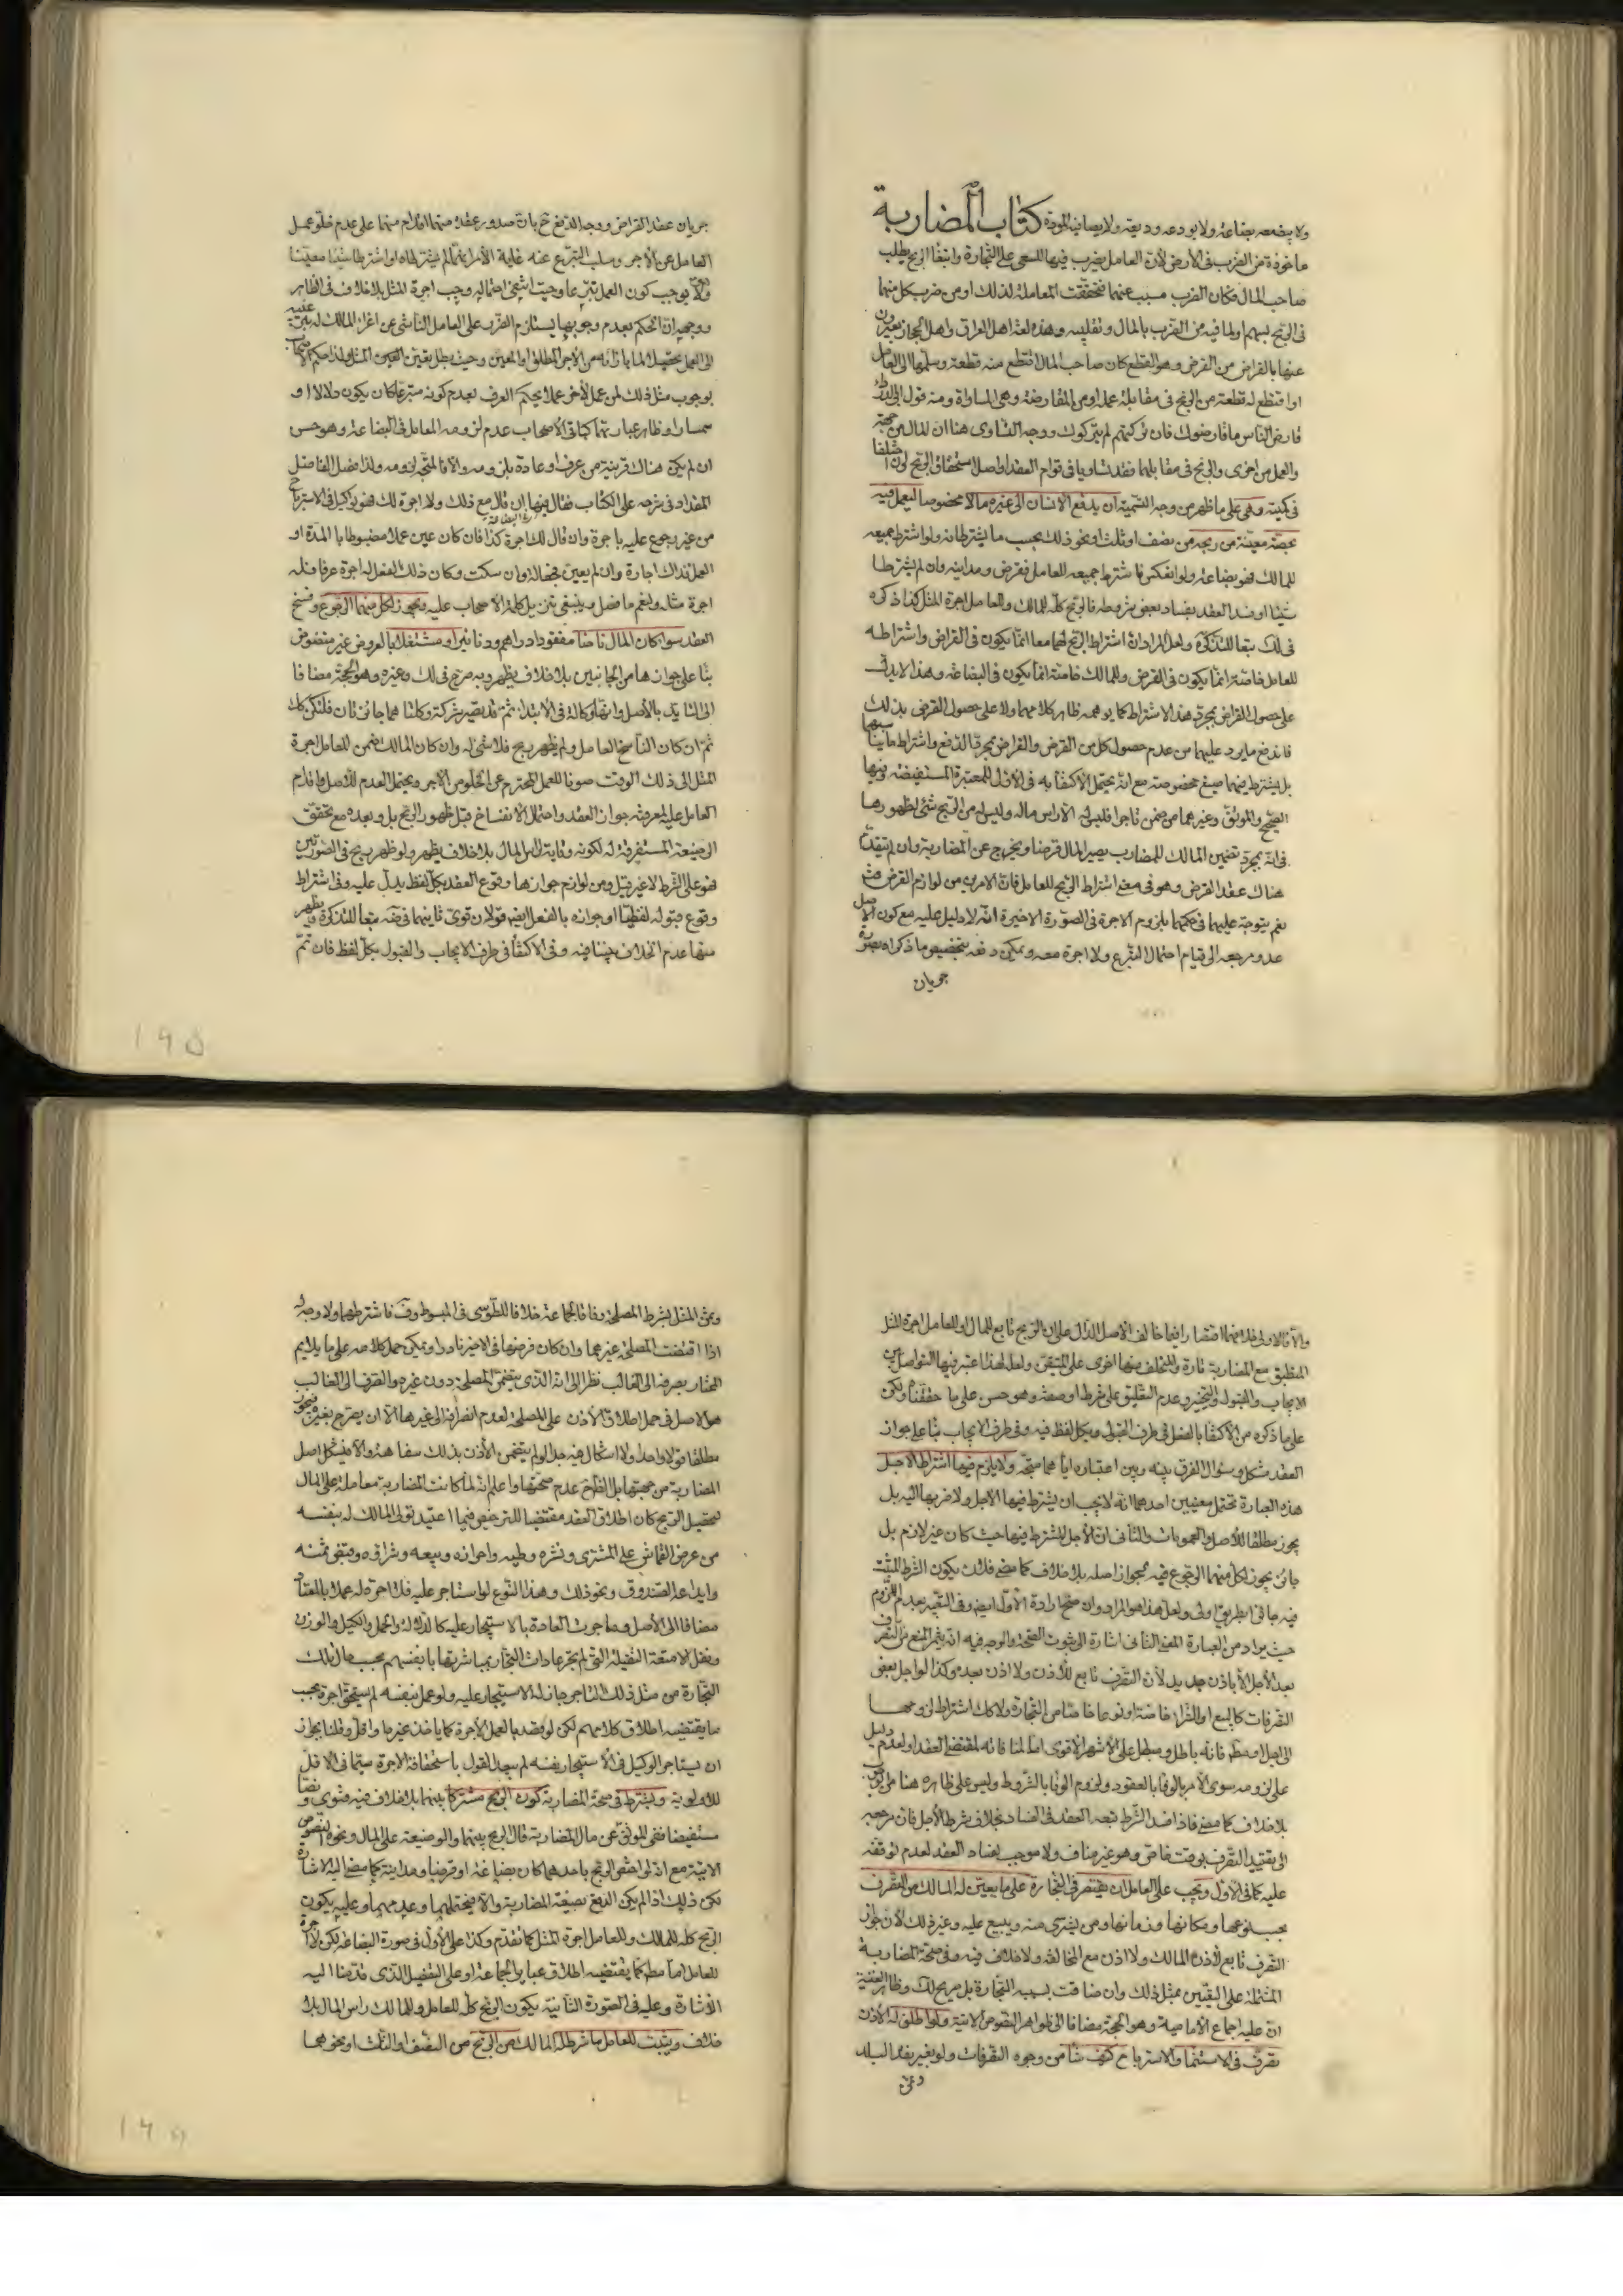 ولا يبضعه بضاعة ولا يودعه وديعة ولا يصافيه المودة كتاب المضاربة
ماخوذة من الضرب في الأرض لأن العامل يضرب فيها للسعي على التجارة وابتغاء الربح بطلب
صاحب المال فكان الضرب مسبب عنهما فتحققت المفاعلة لذلك او من ضرب كل منهما
في الربح بسهم او لما فيه من الضرب بالمال وتقليبه وهذه لغة اهل العراق واهل الحجاز يعبرون
عنها بالقراض من القرض وهو القطع كان صاحب المال اقتطع منه قطعة وسلمها الى العامل
او اقتطع له قطعة من الربح في مقابلة عمله او من المقارضة وهي المساواة ومنه قول ابي الدرداء
قارض الناس ما قارضوك فان تركتهم لم يتركوك ووجه التساوي هنا ان المال من جهة
والعمل من اخرى والربح في مقابلهما فقد تساويا في قوام العقد او اصل استحقاق الربح وان اختلفا
في كميته وهي على ما ظهر من وجه التسمية ان يدفع الانسان الى غيره مالا مخصوصا ليعمل فيه
بحصة معينة من ربحه من نصف او ثلث او نحو ذلك بحسب ما يشترطانه ولو اشترط جميعه
للمالك فهو بضاعة ولو انعكس فاشترط جميعه للعامل فقرض ومداينة وان لم يشترطا
شيئا او فسد العقد بفساد بعض شروطه فالربح كله للمالك وللعامل اجرة المثل كذا ذكره
في لك تبعا للتذكرة ولعل المراد ان اشتراط الربح لهما معا انما يكون في القراض واشتراطه
للعامل خاصة انما يكون في القرض وللمالك خاصة انما يكون في البضاعة وهذا لا يدل
على حصول القراض بمجرد هذا الاشتراط كما يوهمه ظاهر كلامهما ولا على حصول القرض بذلك
فاندفع ما يورد عليهما من عدم حصول كل من القرض والقراض بمجرد الدفع واشتراط ما يناسبهما
بل يشترط فيهما صيغ مخصوصة مع انه يحتمل الاكتفاء به في الاول للمعتبرة المستفيضة وفيها
الصحيح والموثق وغيرهما من ضمن تاجرا فليس له الا راس ماله وليس له من الربح شئ لظهورها
في انه بمجرد تضمين المالك للمضارب يصير المال قرضا ويخرج عن المضاربة وان لم يتقدم
هناك عقد القرض وهو في معنى اشتراط الربح للعامل فان الامرين من لوازم القرض
نعم يتوجه عليهما في حكمهما بلزوم الاجرة في الصورة الاخيرة انه لا دليل عليه مع كون الاصل
عدمه مرجعه الى قيام احتمال التبرع ولا اجرة معه ويمكن دفعه بتخصيص ما ذكراه بصورة
جريان
جريان عقد القراض ووجه الدفع ح بان صدور عقده منهما اقدام منهما على عدم خلو عمل
العامل عن الأجر وسلب التبرع عنه غاية الأمر انهما لم يشترطاه او اشترطا شيئا معينا
ولا يوجب كون العمل تبرعا وحيث انتفى احتماله وجب اجرة المثل بلا خلاف في الظاهر
ووجهه ان الحكم بعدم وجوبها يستلزم الضرر على العامل الناشئ عن اغراء المالك له
بوجوب مثل ذلك لمن عمل لآخر عملا يحكم العرف بعدم كونه متبرعا كان يكون دلالا او
سمسارا وظاهر عبارتهما كباقي الاصحاب عدم لزومه العامل في البضاعة وهو حسن
ان لم يكن هناك قرينة من عرف او عادة بلزومه والا فالمتجه لزومه ولذا فصل الفاضل
المقداد في شرحه على الكتاب فقال فيها ان قال مع ذلك ولا اجرة لك فهو توكيل في الاسترباح
من غير رجوع عليه باجرة وان قال لك اجرة كذا فان كان عين عملا مضبوطا بالمدة او
العمل فذاك اجارة وان لم يعين فجعالة وان سكت وكان ذلك الفعل له اجرة عرفا فله
اجرة مثله ونعم ما فصل وينبغي تنزيل كلمة الاصحاب عليه ويجوز لكل منهما الرجوع وفسخ
العقد سواء كان المال ناضا مفقودا دراهم ودنانير او مشتغلا بالعروض غير منضوض
بناء على جوازها من الجانبين بلا خلاف يظهر وبه صرح في لك وغيره وهو الحجة مضافا
الى التايد بالأصل وانها وكالة في الابتداء ثم قد تصير شركة وكلتاهما جائزتان فلتكن كك
ثم ان كان الناسخ العامل ولم يظهر ربح فلا شئ له وان كان المالك ضمن للعامل اجرة
المثل الى ذلك الوقت صونا للعمل المحترم عن الخلو من الاجر ويحتمل العدم للأصل واقدام
العامل عليه لمعرفته جواز العقد واحتمال الانفساخ قبل ظهور الربح بل وبعده مع تحقق
الوضيعة المستغرقة له لكونه وقاية لراس المال بلا خلاف يظهر ولو ظهر ربح في الصورتين
فهو على الشرط لا غير قيل ومن لوازم جوازها وقوع العقد بكل لفظ يدل عليه وفي اشتراط
وقوع قبوله لفظيا او جوازه بالفعل ايضا قولان قوى ثانيهما في ضه تبعا للتذكرة ويظهر
منها عدم الخلاف بيننا فيه وفي الاكتفاء في طرف الايجاب والقبول بكل لفظ فان تم
والا فالاولى خلافهما اقتصارا فيما خالف الاصل الدال على ان الربح تابع للمال او للعامل اجرة المثل
المنطبق مع المضاربة تارة والمتخلف عنها اخرى على المتيقن ولعله لهذا اعتبر فيها التواصل بين
الايجاب والقبول والتنجيز وعدم التعليق على شرط او صفة وهو حسن على ما حققناه ولكن
على ما ذكره من الاكتفاء بالفعل في طرف القبول وبكل لفظ فيه وفي طرف الايجاب بناء على جواز
العقد مشكل وسؤال الفرق بينه وبين اعتباره اياهما متجه ولا يلزم فيها اشتراط الاجل
هذه العبارة تحتمل معنيين احدهما انه لا يجب ان يشترط فيها الاجل ولا ضربها اليه بل
يجوز مطلقا للأصل والعمومات والثاني ان الأجل المشترط فيها حيث كان غير لازم بل
جائز يجوز لكل منهما الرجوع فيه لجواز اصله بلا خلاف كما مضى فلان يكون الشرط المثبت
فيه جائزا بطريق اولى ولعل هذا هو المراد وان صح ارادة الأول ايضا وفي التعبير بعدم اللزوم
حيث يراد من العبارة المعنى الثاني اشارة الى ثبوت الصحة والوجه فيه انه يثمر المنع من التصرف
بعد الأجل الا باذن جديد لأن التصرف تابع للأذن ولا اذن بعده وكذا لو اجل بعض
التصرفات كالبيع او الشراء خاصة او نوعا خاصا من التجارة ولا كك اشتراط لزومها
الى اجل او مطم فانه باطل ومبطل على الأشهر الاقوى اما لمنافاته لمقتضى العقد او لعدم دليل
على لزومه سوى الأمر بالوفاء بالعقود ولزوم الوفاء بالشروط وليس على ظاهره هنا من الوجوب
بلا خلاف كما مضى فاذا فسد الشرط تبعه العقد في الفساد بخلاف شرط الأجل فان مرجعه
الى تقييد التصرف بوقت خاص وهو غير مناف ولا موجب لفساد العقد لعدم توقفه
عليه كما في الأول ويجب على العامل ان يقتصر في التجارة على ما يعين له المالك من التصرف
بحسب نوعها ومكانها وزمانها ومن يشتري منه ويبيع عليه وغير ذلك لأن جواز
التصرف تابع لأذن المالك ولا اذن مع المخالفة ولا خلاف فيه وفي صحة المضاربة
المشتملة على التعيين بمثل ذلك وان ضاقت بسببه التجارة بل صريح لك وظاهر الغنية
ان عليه اجماع الأمامية وهو الحجة مضافا الى ظواهر النصوص الآتية ولو اطلق له الأذن
تصرف في الاستنماء والاسترباح كيف شاء من وجوه التصرفات ولو بغير نقد البلد
وثمن
وثمن المثل بشرط المصلحة وفاقا لجماعة خلافا للطوسي في المبسوط وف فاشترطهما ولا وجه له
اذا اقتضت المصلحة غيرهما وان كان فرضها في الاخير نادرا ويمكن حمل كلامه على ما يلايم
المختار بصرفه الى الغالب نظرا الى انه الذي يتضمن المصلحة دون غيره والصرف الى الغالب
هو الاصل في حمل اطلاق الأذن على المصلحة لعدم انصرافه الى غيرها الا ان يصرح بغيره
مطلقا قولا واحدا ولا اشكال فيه جدا لو لم يتضمن الأذن بذلك سفاهة والا فيشكل اصل
المضاربة من جهتها بل الظاهر ح عدم صحتها واعلم انه لما كانت المضاربة معاملة على المال
لتحصيل الربح كان اطلاق العقد مقتضيا للترخيص فيما اعتيد تولى المالك له بنفسه
من عرض القماش على المشتري ونشره وطيه واحرازه وبيعه وشراؤه وقبض ثمنه
وايداعه الصندوق ونحو ذلك وهذا النوع لو استاجر عليه فلا اجرة له عملا بالمعتاد
مضافا الى الأصل وما جرت العادة بالاستيجار عليه كالدلالة والحمل والكيل والوزن
ونقل الامتعة الثقيلة التي لم تجر عادات التجار بمباشرتها بانفسهم بحسب حال تلك
التجارة من مثل ذلك التاجر جاز له الاستيجار عليه ولو عمل بنفسه لم يستحق اجرة بحسب
ما يقتضيه اطلاق كلامهم لكن لو قصد بالعمل الأجرة كما ياخذ غيره او اقل وقلنا بجواز
ان يستاجر الوكيل في الاستيجار نفسه لم يبعد القول باستحقاقه الاجرة سيما في الاقل
للأولوية ويشترط في صحة المضاربة كون الربح مشتركا بينهما بلا خلاف فيه فتوى ونصا
مستفيضا ففي الموثق عن مال المضاربة قال الربح بينهما والوضيعة على المال ونحوه النصوص
الاتية مع انه لو اختص الربح باحدهما كان بضاعة او قرضا ومداينة كما مضى اليه الاشارة
لكن ذلك اذا لم يكن الدفع بصيغة المضاربة والا فيحتملهما وعدمهما وعليه يكون
الربح كله للمالك وللعامل اجرة المثل كما تقدم وكذا على الأول في صورة البضاعة لكن لا اجرة
للعامل اما مطم كما يقتضيه اطلاق عباير الجماعة او على التفصيل الذي قدمنا اليه
الأشارة وعليه في الصورة الثانية يكون الربح كله للعامل وللمالك راس المال بلا
خلاف ويثبت للعامل ما شرط له المالك من الربح من النصف او الثلث او نحوهما